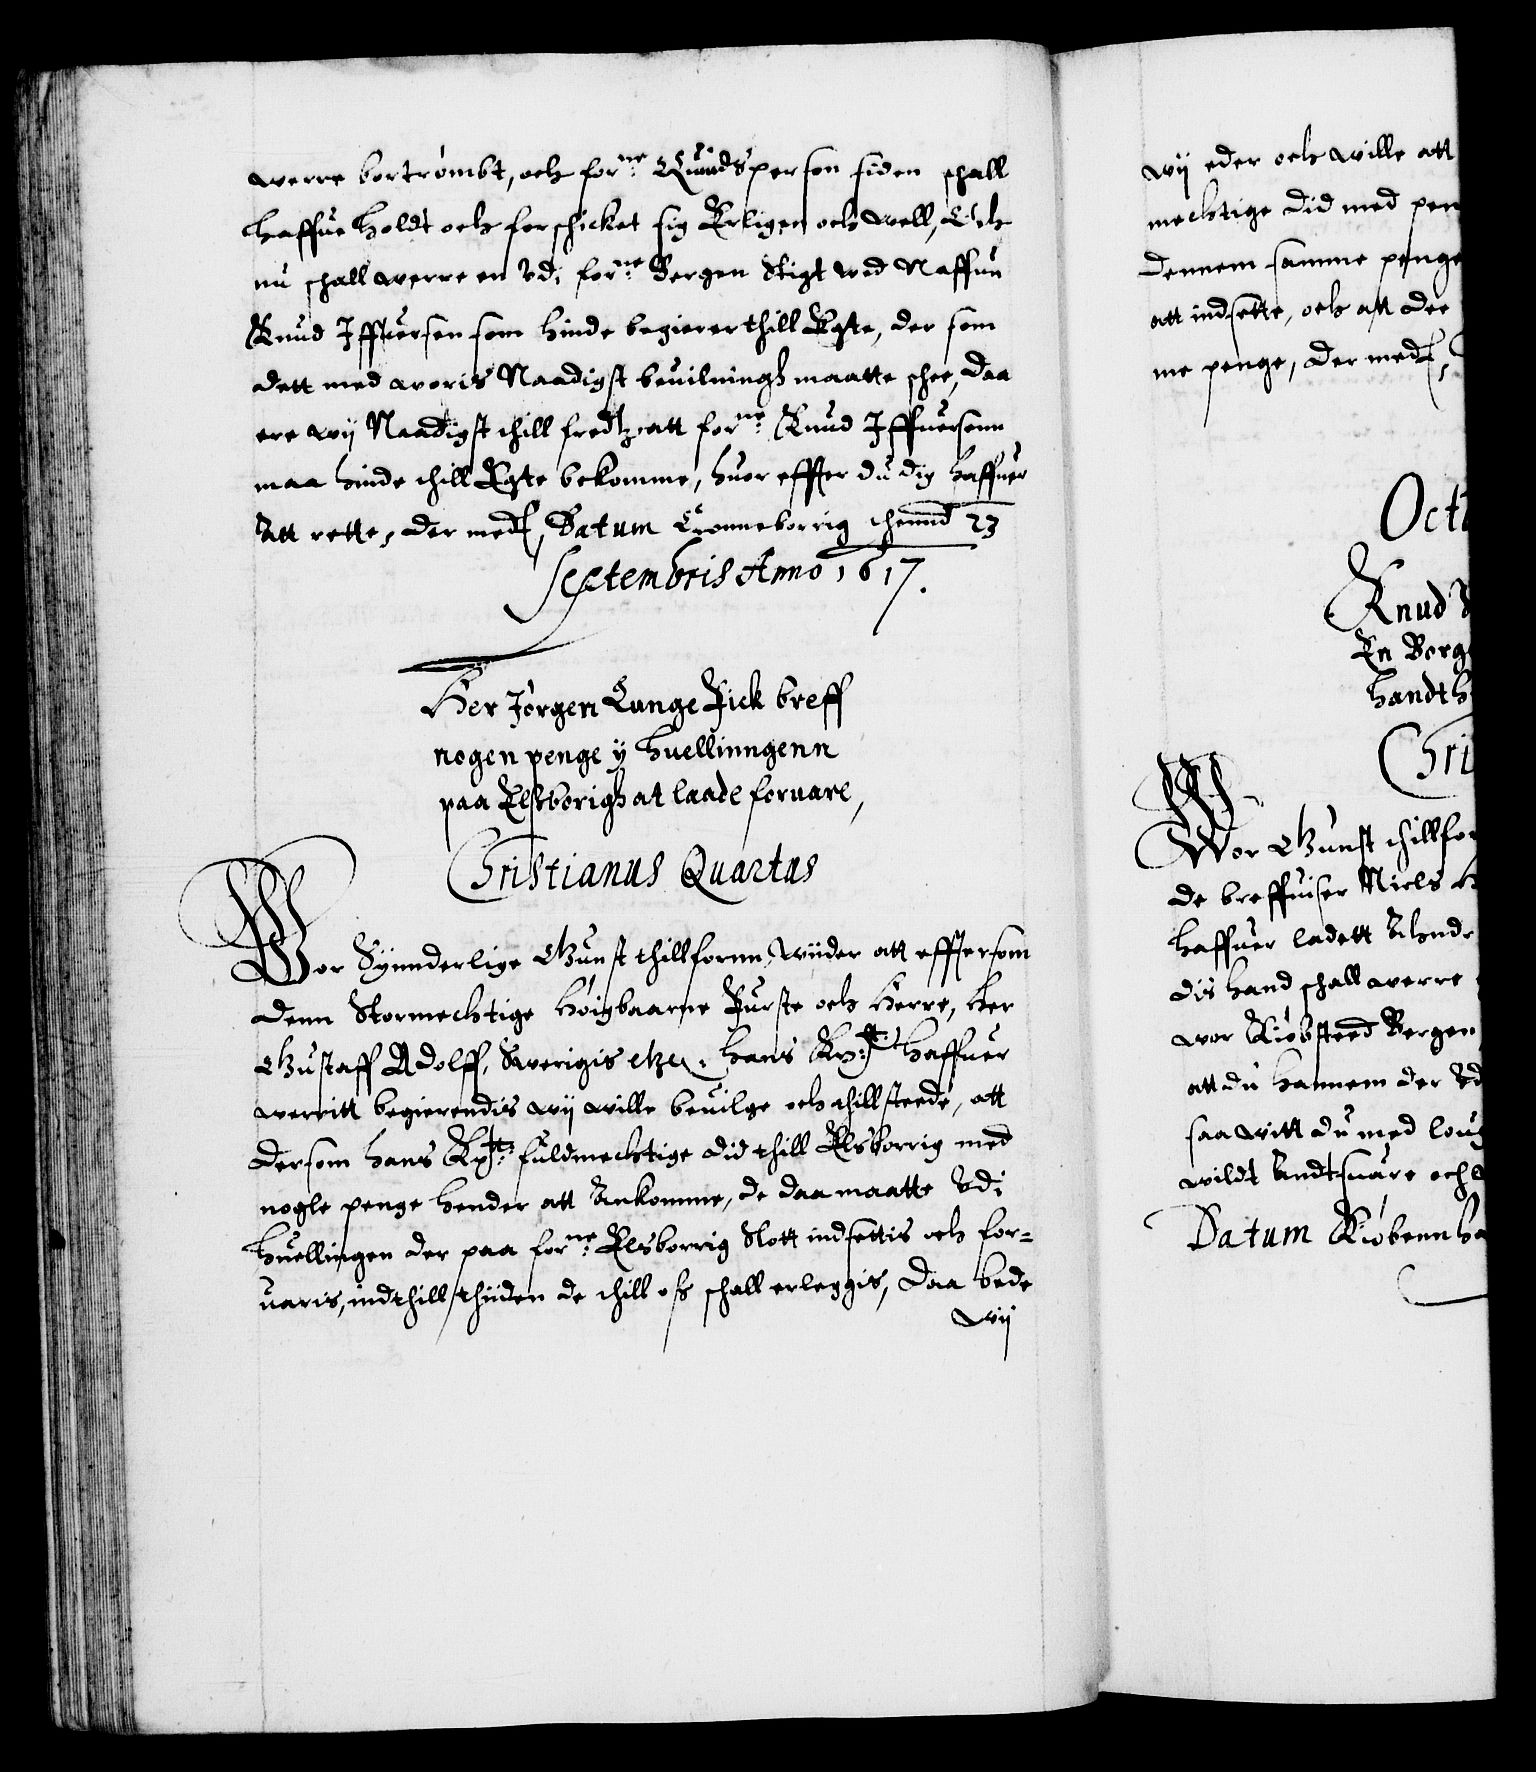 werre bortrømbt, och forne Quindsperson siden schall
haffue holdt och forschicket sig Erligen och well, Och
nu schall werre en Vdi forne Bergen Stigt wed Naffun
Knud Iffuersen som hinde begierer thill Egte, der som
dett med woris Naadigst beuilningh maatte schee, daa
ere wij Naadigst thill fredtz att forne Knud Iffuersenn
maa hinde thill Egte bekomme, huor effter du dig haffuer
Att rette, der med, Datum Cronneborrig thennd 23
Septembris Anno 1617.
Her Jørgen Lange Fick breff
nogen penge ÿ huellinngenn
paa Elsborigh at laade foruare,
Christianus Quartus
Wor Synnderlige Gunst thillfornn, Wiider att efftersom
denn Stormechtige Høigbaarne Furste och Herre, Her
Gustaff Adolff, Swerigis etc. hans Kptt: haffuer
werritt begierendis wij wille beuilge och thillsteede, att
dersom hans Kptt: fuldmechtige did thill Elsborrig med
nogle penge hender att Ankomme, de daa maatte Vdi
huellingen der paa forne Elsborrig Slott indsettis och for-
uaris, indthill thiiden de thill oss schall erleggis, Daa bede
wij
wij eder och wille att
mechtige did med pen
dennem samme penge
att indsette, och att dee
me penge, der med,
Oct
Knud
En Borg
handt h
Chri
Wor Gunst thillfor
de breffuiser Niels H
haffuer ladett Ahndr
dis hand schall werre
wor Kiøbsteed Bergen
att du hannem der Vd
saa witt du med loug
wildt Andtsuare och
Datum Kiøbennha